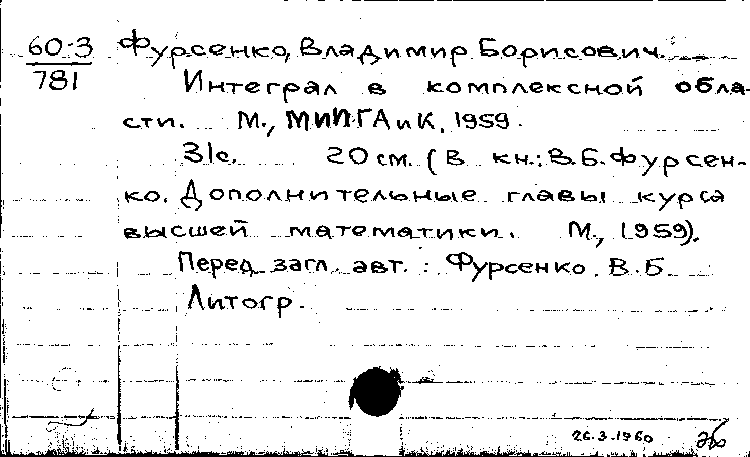 60-3 Фурсенко, Владимир Борисович.
781 Интеграл в комплексной обла-
сти. М., МИИГАиК, 1959.
31с. 20 см. (В кн.: В.Б. Фурсен-
ко. Дополнительные главы курса
высшей математики. М., 1959).
Перед загл. авт.: Фурсенко. В.Б.
Литогр.
26.3.1960